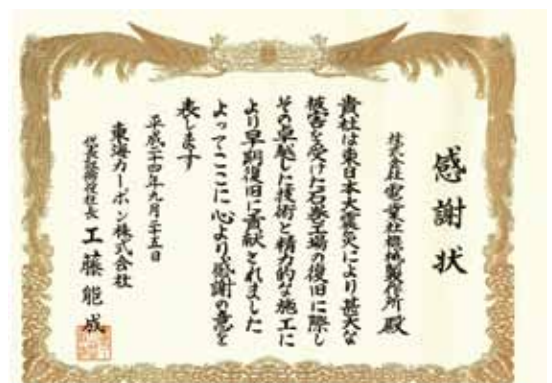 感謝状
株式会社 電業社機械製作所 殿
貴社は東日本大震災により甚大な
被害を受けた石巻工場の復旧に際し
その卓越した技術と精力的な施工に
より早期復旧に貢献されました
よってここに心より感謝の意を
表します
平成二十四年九月二十五日
東海カーボン株式会社
代表取締役社長 工藤能成